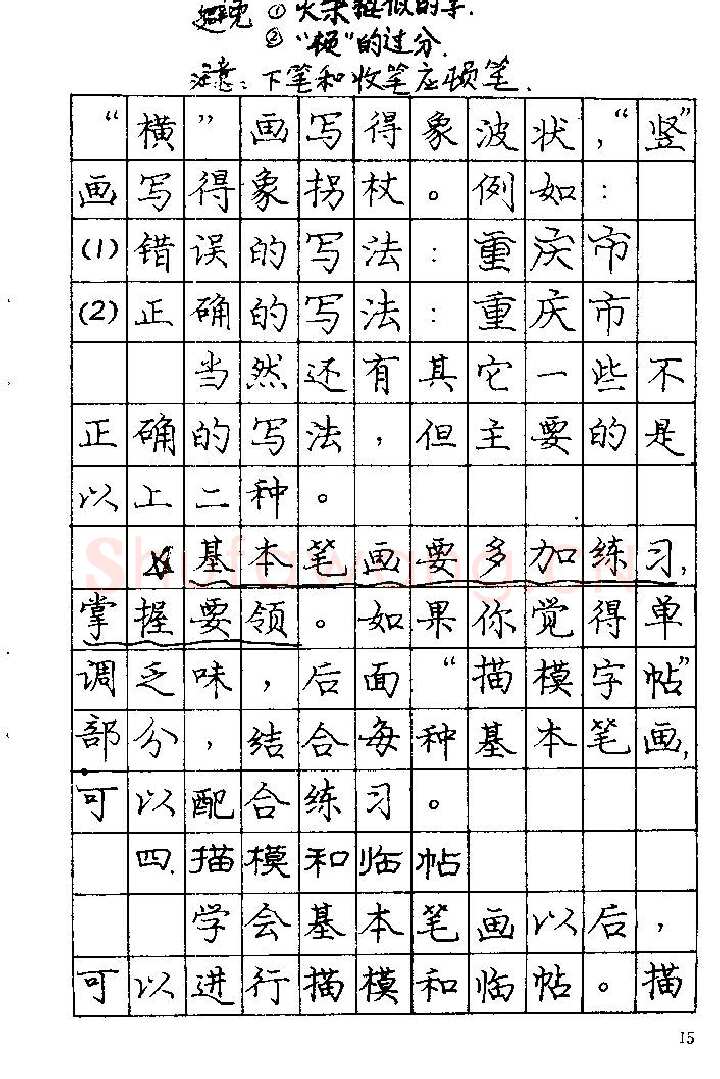 避免 ①火柴棍似的字.
②“顿”的过分.
注意：下笔和收笔应顿笔.
“横”画写得象波状，“竖”
画写得象拐杖。例如：
(1)错误的写法：重庆市
(2)正确的写法：重庆市
当然还有其它一些不
正确的写法，但主要的是
以上二种。
基本笔画要多加练习，
掌握要领。如果你觉得单
调乏味，后面“描模字帖”
部分，结合每种基本笔画，
可以配合练习。
四.描模和临帖
学会基本笔画以后，
可以进行描模和临帖。描
15
Shufawang.CN